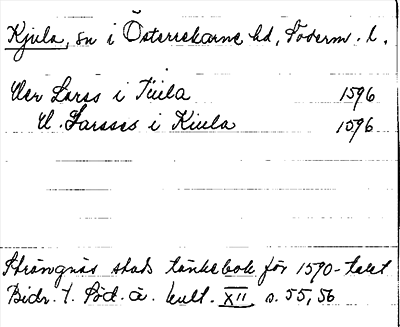 Kjula, sn i Österrekarne hd, Söderm. l.
Oler Larss i Kiula 1596
O. Larsses i Kiula 1596
Strängnäs stads tänkebok för 1590-talet
Bidr. t. Söd. ä. kult. XII, s. 55, 56